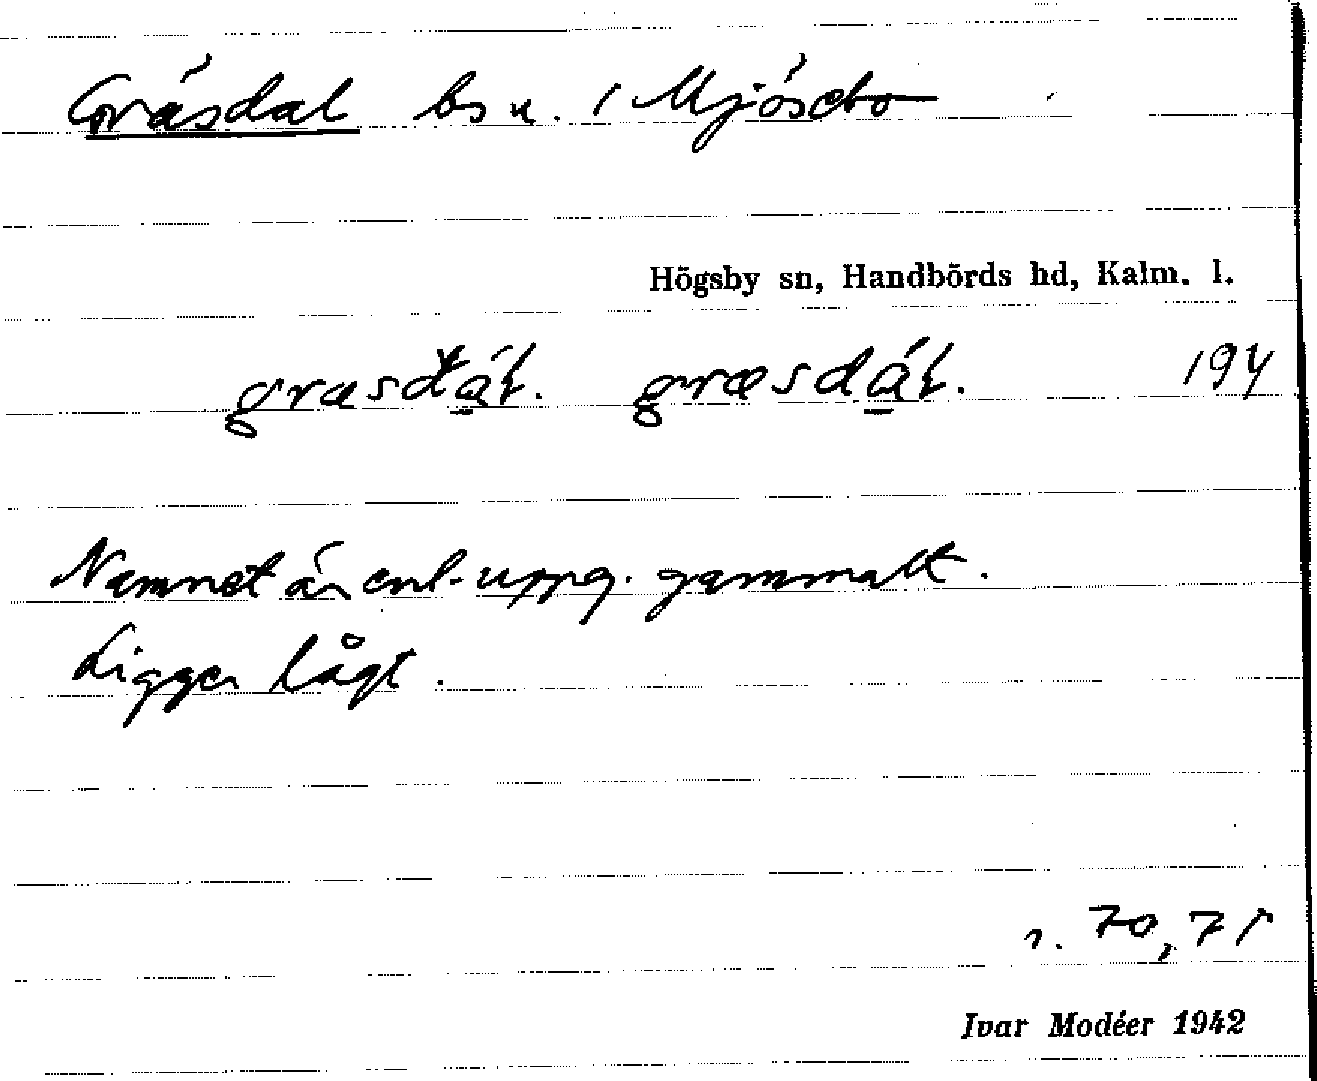 Gräsdal bs u. / Mjösebo
Högsby sn, Handbörds hd, Kalm. l.
græsdál. græsdál. 194
Namnet är enl. uppg. gammalt.
Ligger lågt.
s. 70, 71
Ivar Modéer 1942